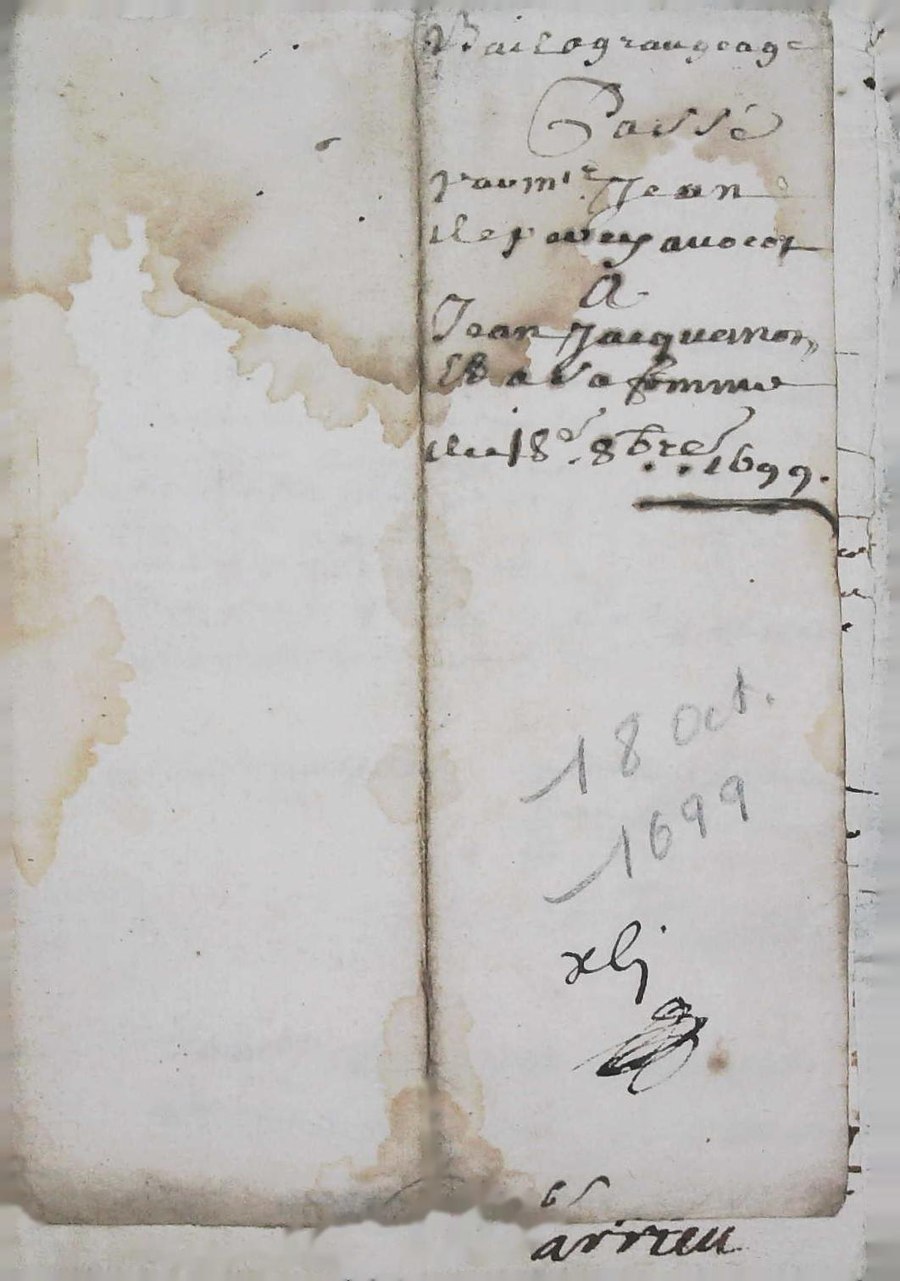 Bail a grangeage
Passé
par mre Jean
avocat
A
Jean Jacquemot
Et a sa femme
le 18e 8bre 1699.
18 Oct.
1699
xlj
arrieu